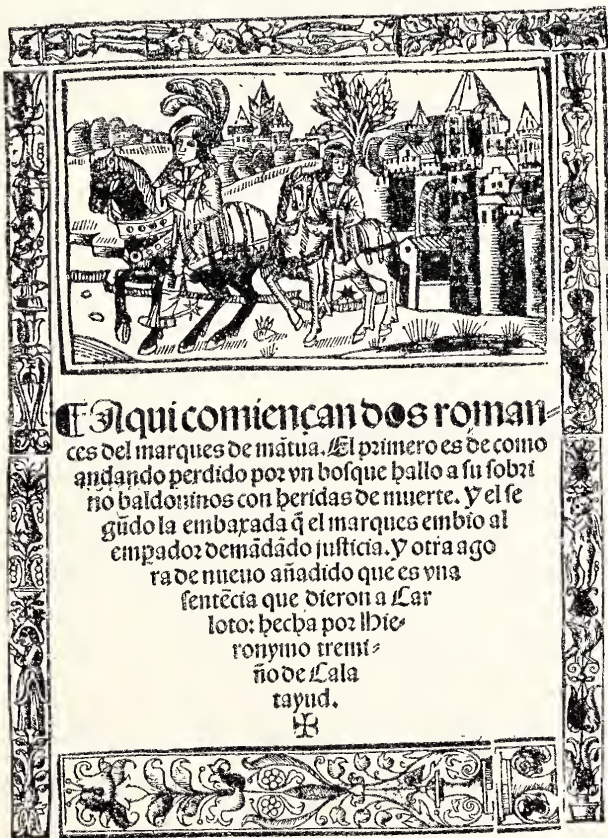 ¶Aqui comiençan dos roman-
ces del marques de mãtua. El primero es de como
andando perdido por vn bosque hallo a su sobri
no baldouinos con heridas de muerte. Y el se
gũdo la embaxada q̃ el marques embio al
empador demãdãdo justicia. Y otra ago
ra de nueuo añadido que es vna
sentẽcia que dieron a Car
loto: hecha por Hie-
ronymo tremi-
ño de Cala
tayud.
✠